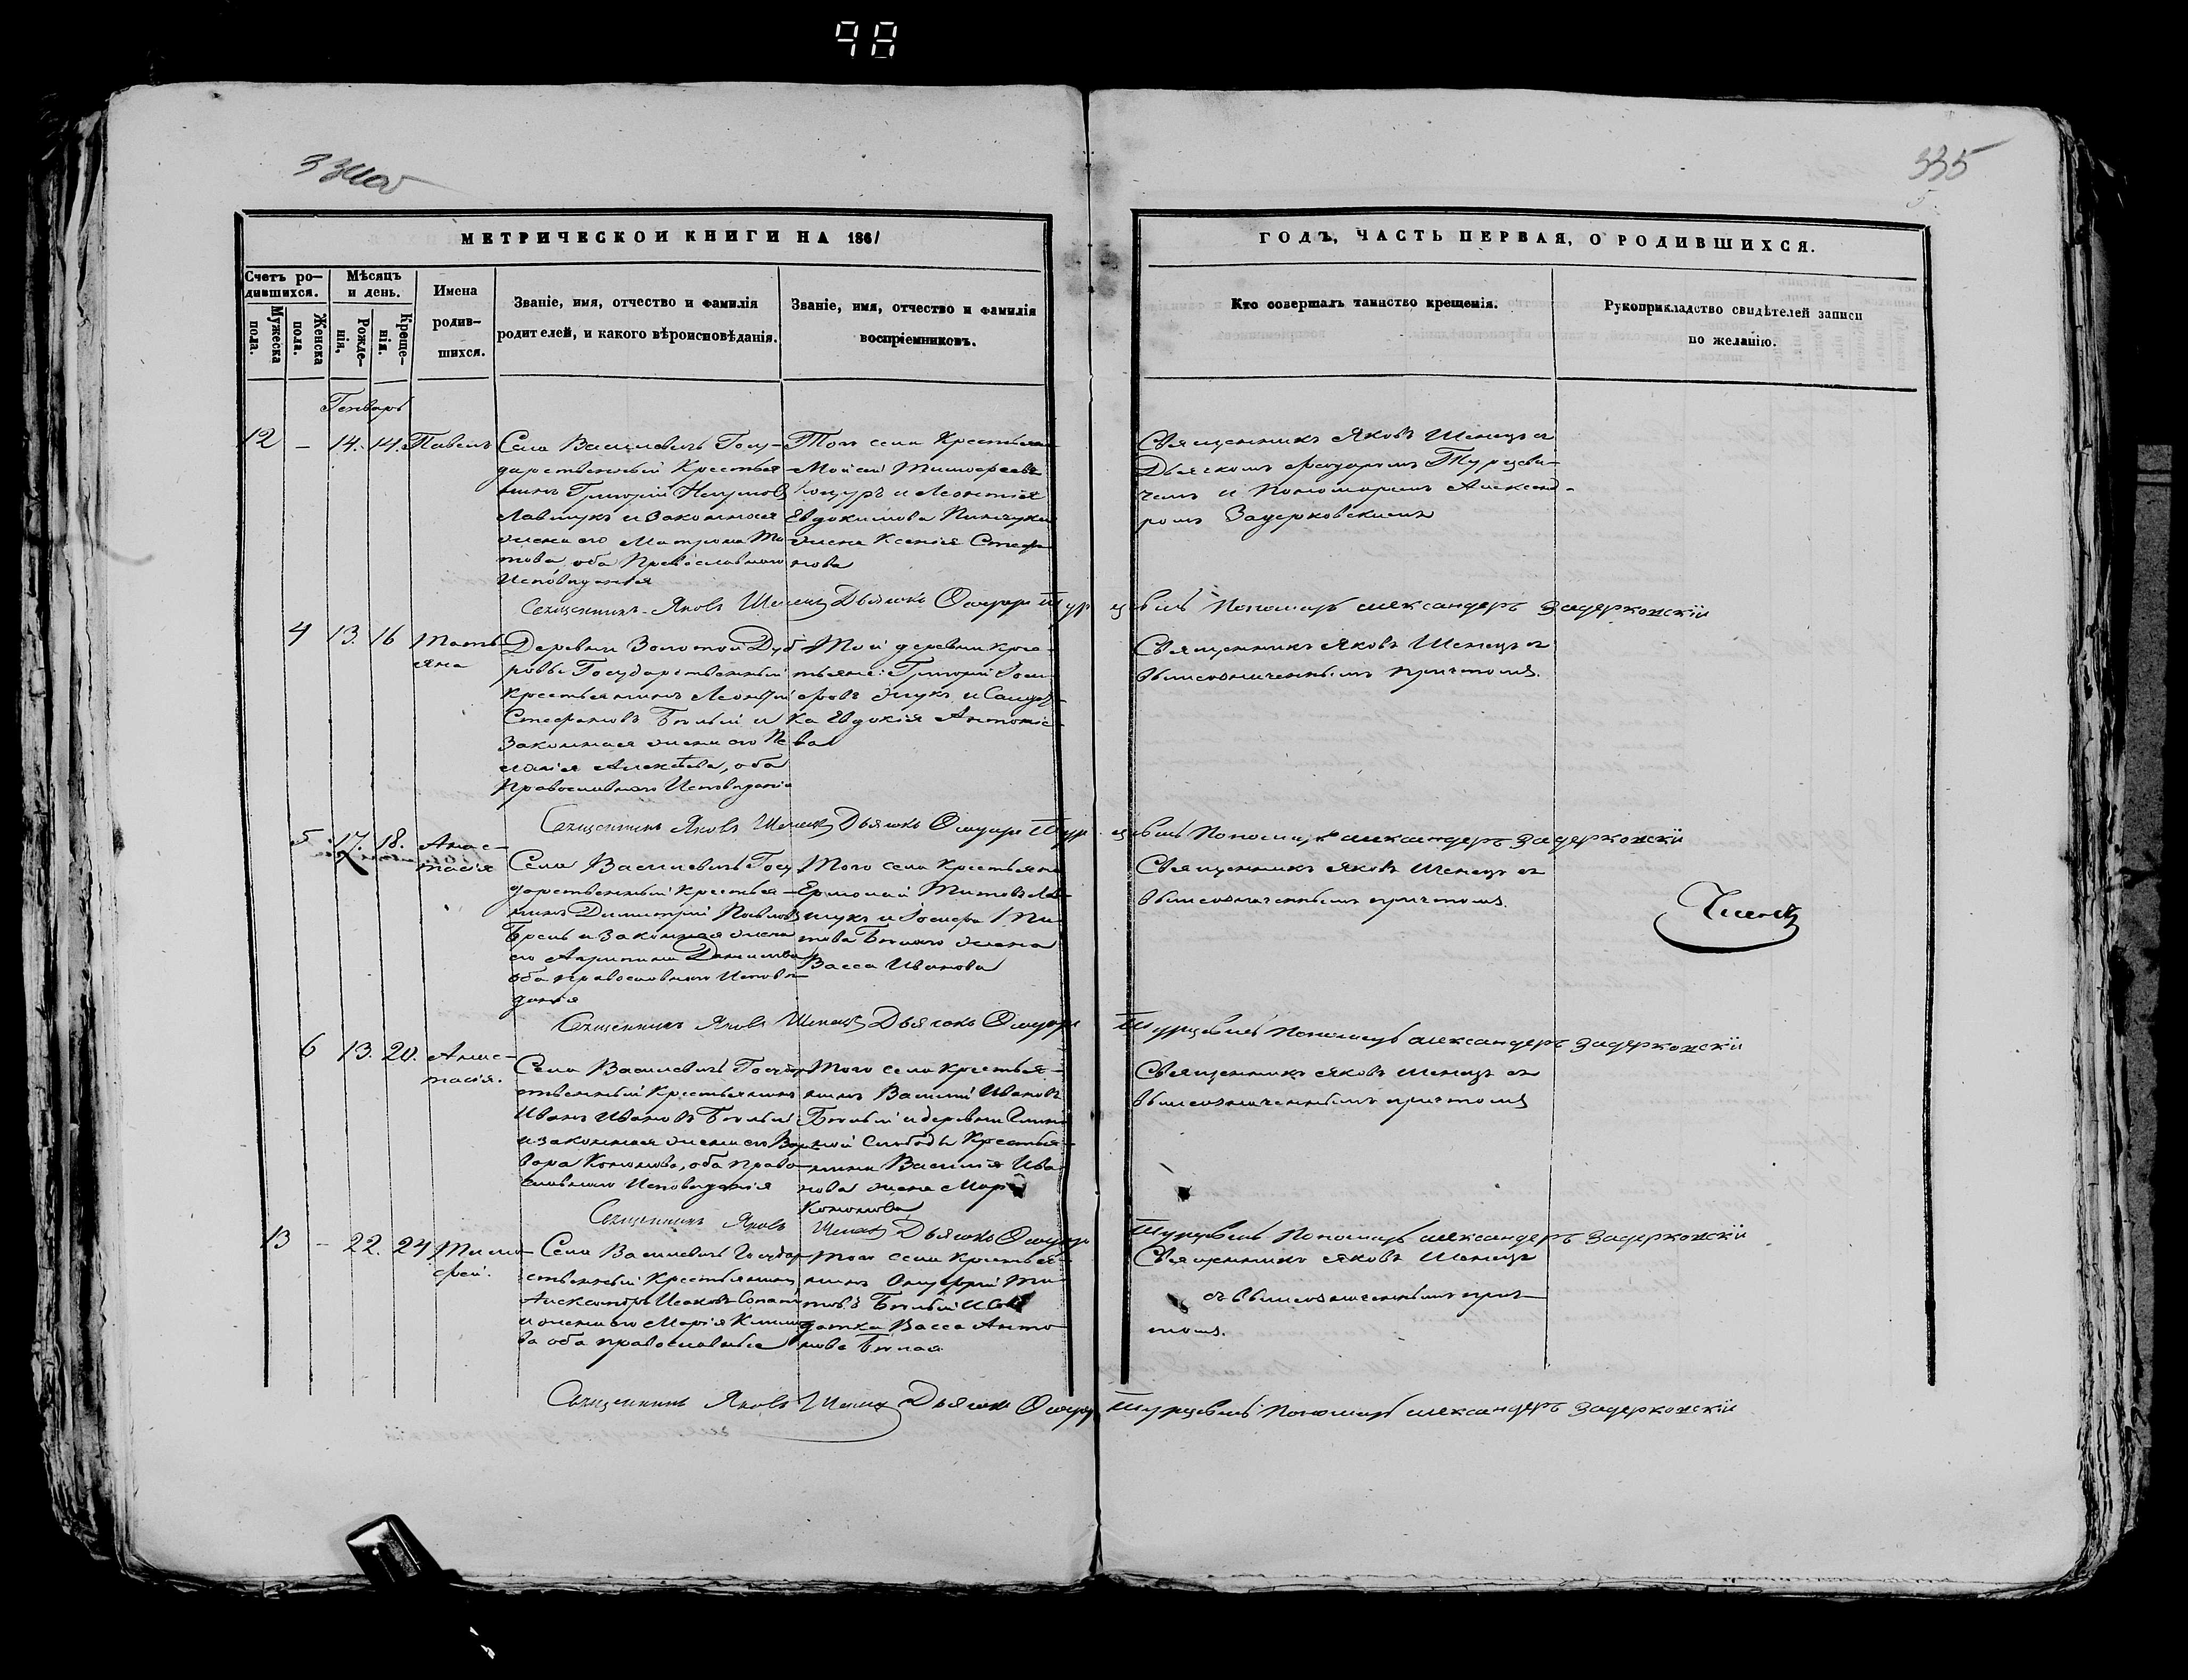 98
335
МЕТРИЧЕСКОЙ КНИГИ НА 1861
ГОДЪ, ЧАСТЬ ПЕРВАЯ, О РОДИВШИХСЯ.
Счетъ ро-
дившихся.
Мужеска
пола.
Женска
пола.
Мѣсяцъ
и день.
Рожде-
нія.
Креще-
нія.
Имена
родив-
шихся.
Званіе, имя, отчество и фамилія
родителей, и какого вѣроисповѣданія.
Званіе, имя, отчество и фамилія
воспріемниковъ.
Кто совершалъ таинство крещенія.
Рукоприкладство свидѣтелей записи
по желанію.
Генварь
12 – 14. 14. Павелъ
Села Василевичъ Госу-
дарственный Крестья-
нинъ Григорій Наумовъ
Лавшукъ и законная
жена его Матрона Ти-
това, оба Православнаго
Исповѣданія
Того села Крестьяне
Мойсей Тимофеевъ
и Леонтія
Евдокимова
жена Ксенія Стефа-
нова
Священникъ Яковъ Шенецъ съ
Дьячкомъ Феодоромъ Турцеви-
чемъ и Пономаремъ Александ-
ромъ Задерковскимъ
Священникъ Яковъ Шенецъ Дьячокъ Ѳеодоръ Турцевичъ Пономарь Александеръ Задерковскій
4 13. 16 Тать-
яна
Деревни Золотой Дуб-
ровы Государственный
Крестьянинъ Леонтій
Стефановъ Бѣлый и
Законная жена его Пе-
лагія Алексѣева, оба
Православнаго Исповѣданія
Той деревни крес-
тьяне: Григорій
Жукъ и
Евдокія Антоніе-
ва
Священникъ Яковъ Шенецъ съ
вышеозначеннымъ причтомъ.
Священникъ Яковъ Шенецъ Дьячокъ Ѳеодоръ Турцевичъ Пономарь Александеръ Задерковскій
5 17. 18. Анас-
тасія
Села Василевичъ Госу-
дарственный Крестья-
нинъ Димитрій Павловъ
и Законная жена
его Данилова
оба православнаго Исповѣ-
данія
Того села Крестьяне
Ермолай Титовъ Лав-
шукъ и Іосифа Ти-
това Бѣлаго жена
Васса Иванова
Священникъ Яковъ Шенецъ съ
вышеозначеннымъ причтомъ.
Священникъ Яковъ Шенецъ Дьячокъ Ѳеодоръ Турцевичъ Пономарь Александеръ Задерковскій
6 13. 20. Анас-
тасія.
Села Василевичъ Государ-
ственный Крестьянинъ
Иванъ Ивановъ Бѣлый
и законная жена его Вар-
вара Кононова, оба право-
славнаго Исповѣданія
Того села крестья-
нинъ Василій Ивановъ
Бѣлый и деревни
Слободы Крестья-
нина Василія Ива-
нова жена Марія
Кононова
Священникъ Яковъ Шенецъ съ
вышеозначеннымъ причтомъ
Священникъ Яковъ Шенецъ Дьячокъ Ѳеодоръ Турцевичъ Пономарь Александеръ Задерковскій
13 – 22. 24 Тимо-
фей.
Села Василевичъ Государ-
ственный Крестьянинъ
Александръ Исаковъ
и жена его Марія
ва оба православные
Того села Крестья-
нинъ Онуфрій Ти-
товъ Бѣлый и
Васса Анто-
нова Бѣлая
Священникъ Яковъ Шенецъ
съ вышеозначеннымъ прич-
томъ.
Священникъ Яковъ Шенецъ Дьячокъ Ѳеодоръ Турцевичъ Пономарь Александеръ Задерковскій